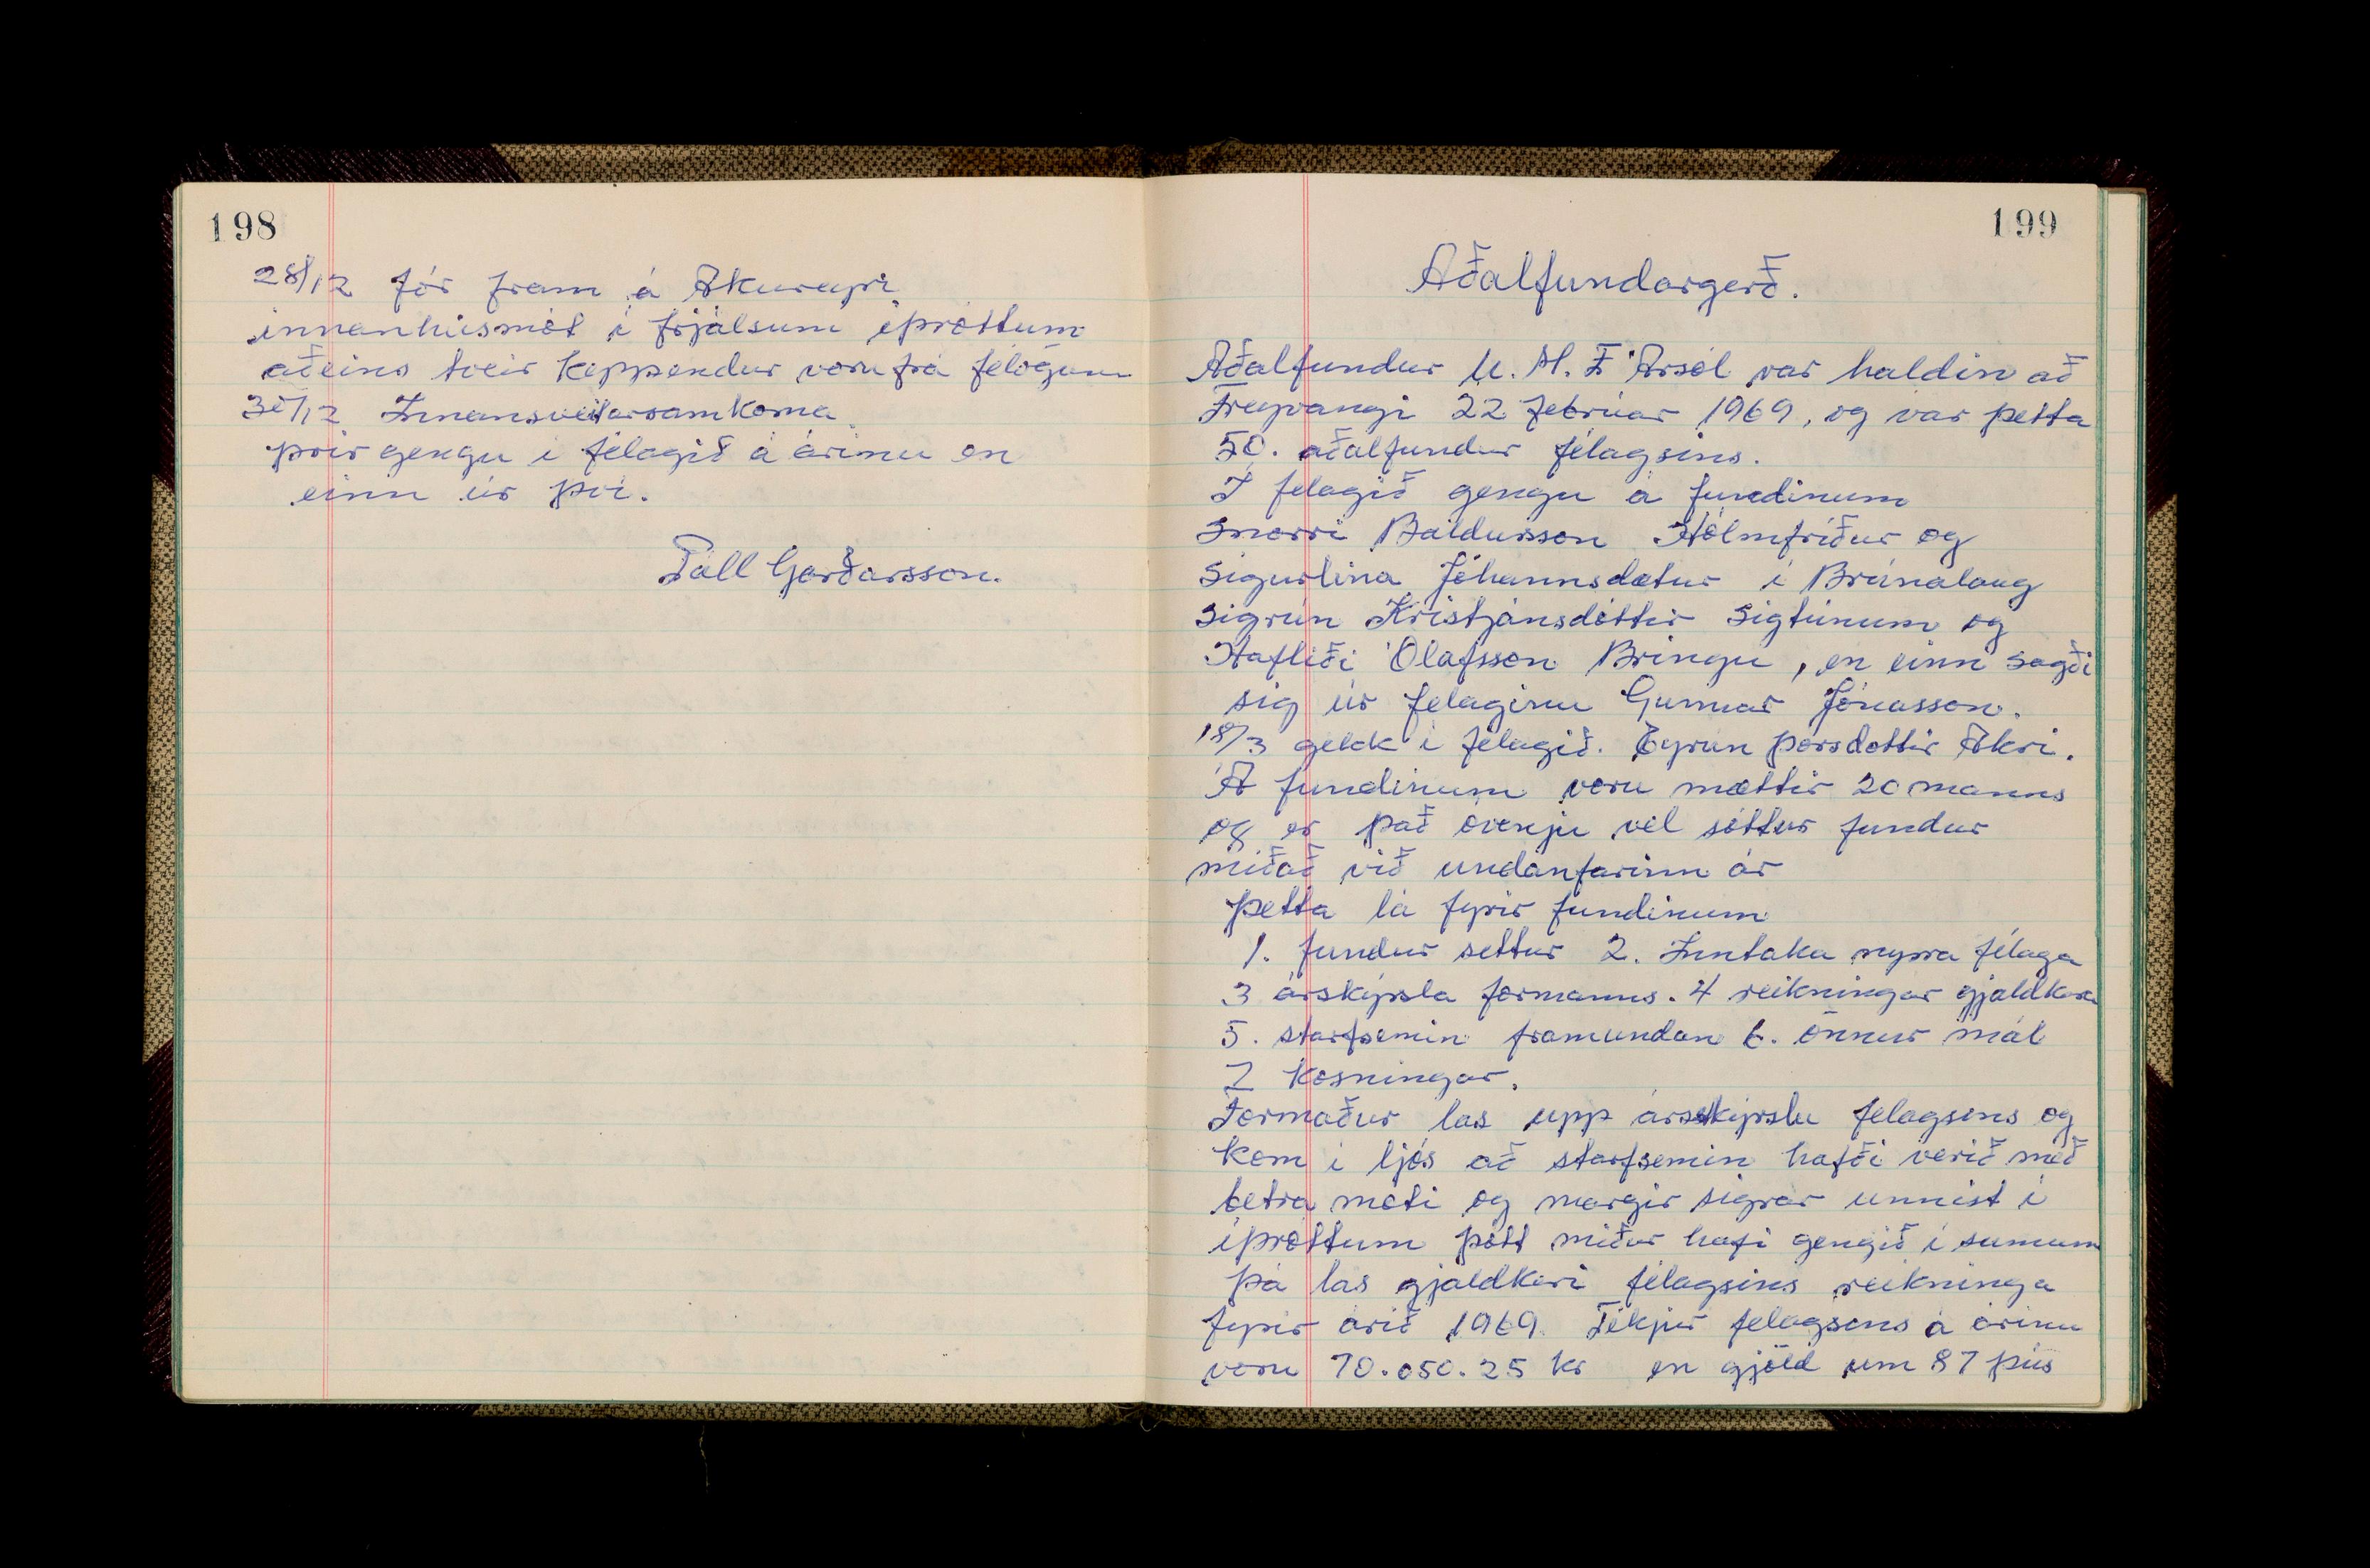 198
28/12 fór fram á Akureyri
innanhúsmót í frjálsum íþróttum
aðeins tveir keppendur voru frá félögum
30/12 Innansveitarsamkoma
þrír gengu í félagið á árinu en
einn úr því.
Páll Garðarsson.
199
Aðalfundargerð.
Aðalfundur U. M. F Ársól var haldin að
Freyvangi 22 febrúar 1969, og var þetta
50. aðalfundur félagsins.
I felagið gengu á fundinum
Snorri Baldursson Hólmfríður og
Sigurlína Jóhannsdætur í Brúnalaug
Sigrún Kristjánsdóttir Sigtúnum og
Hafliði Ólafsson Bringu, en einn sagði
sig úr felaginu Gunnar Jónasson.
18/3 gekk í félagið. Eyrun Þorsdottir Akri.
Á fundinum voru mættir 20 manns
og er það ovenju vel sóttur fundur
miðað við undanfarinn ár
þetta lá fyrir fundinum
1. fundur settur 2. Inntaka nyrra félaga
3 árskýrsla formanns. 4 reikningar gjaldkera
5. starfsemin framundan 6. önnur mál
7 kosningar.
Formaður las upp ársskýrslu felagsins og
kom í ljós að starfsemin hafði verið með
betra moti og margir sigrar unnist í
íþrottum þótt miður hafi gengið í sumum
Þá las gjaldkeri félagsins reikninga
fyrir árið 1969. Tekjur felagsens á árinu
voru 70.050.25 kr en gjöld um 87 þús